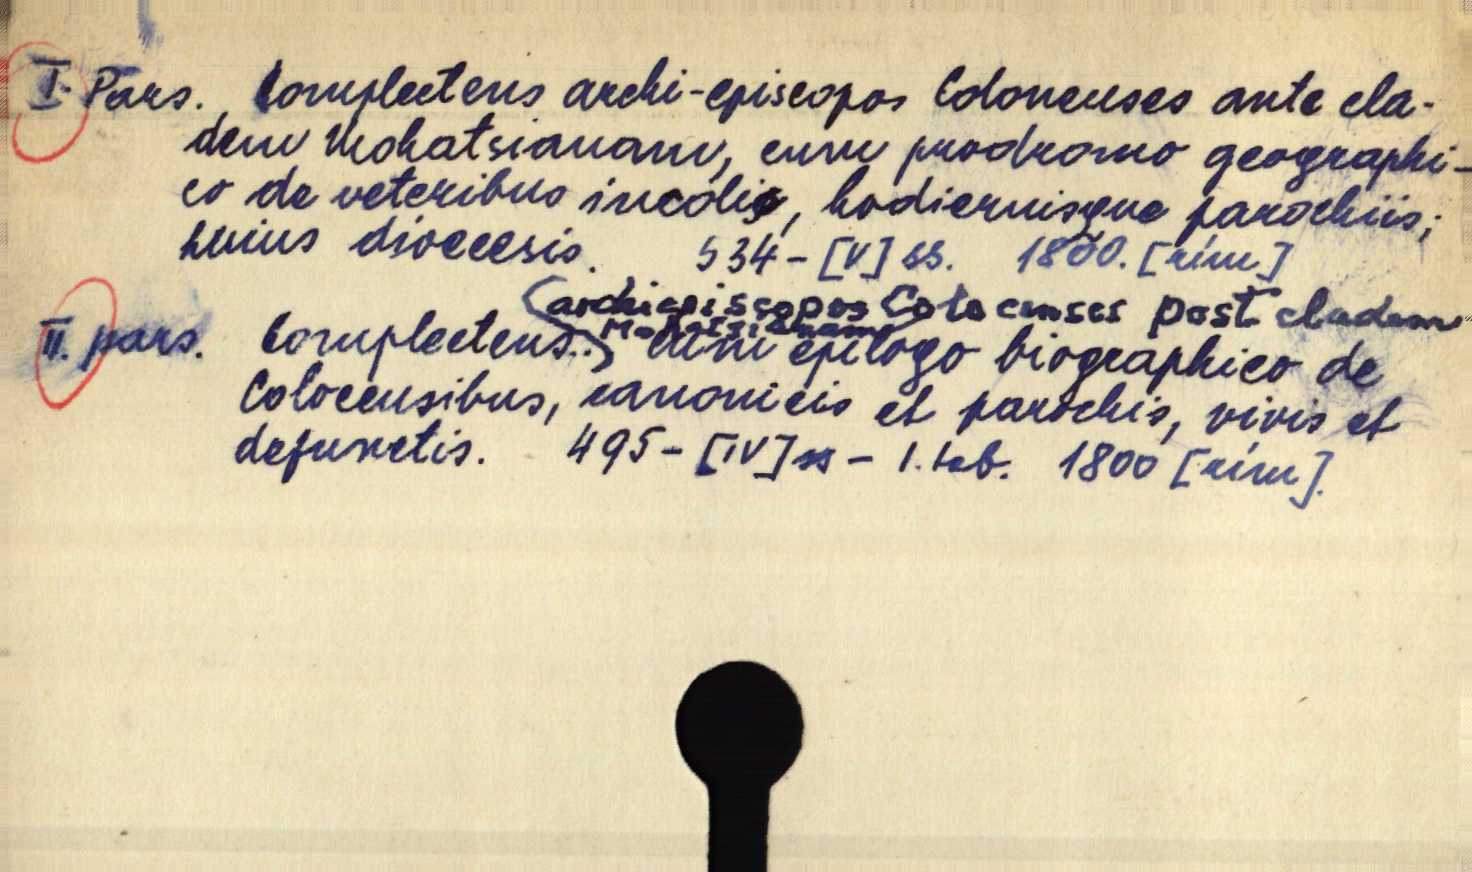 I. Pars. Complectens archi-episcopos Colonenses ante cla-
dem Mohatsianam, cum prodromo geographi-
co de veteribus incolis, hodiernisque parochiis;
huius dioecesis. 534-[V] ss. 1800. [rím.]
(archiepiscopos Colocenses post cladem
Mohatsianam)
II. pars. Complectens.. cum epilogo biographico de
Colocensibus, canonicis et parochis, vivis et
defunctis. 495-[IV] ss - 1. tab. 1800 [rím].